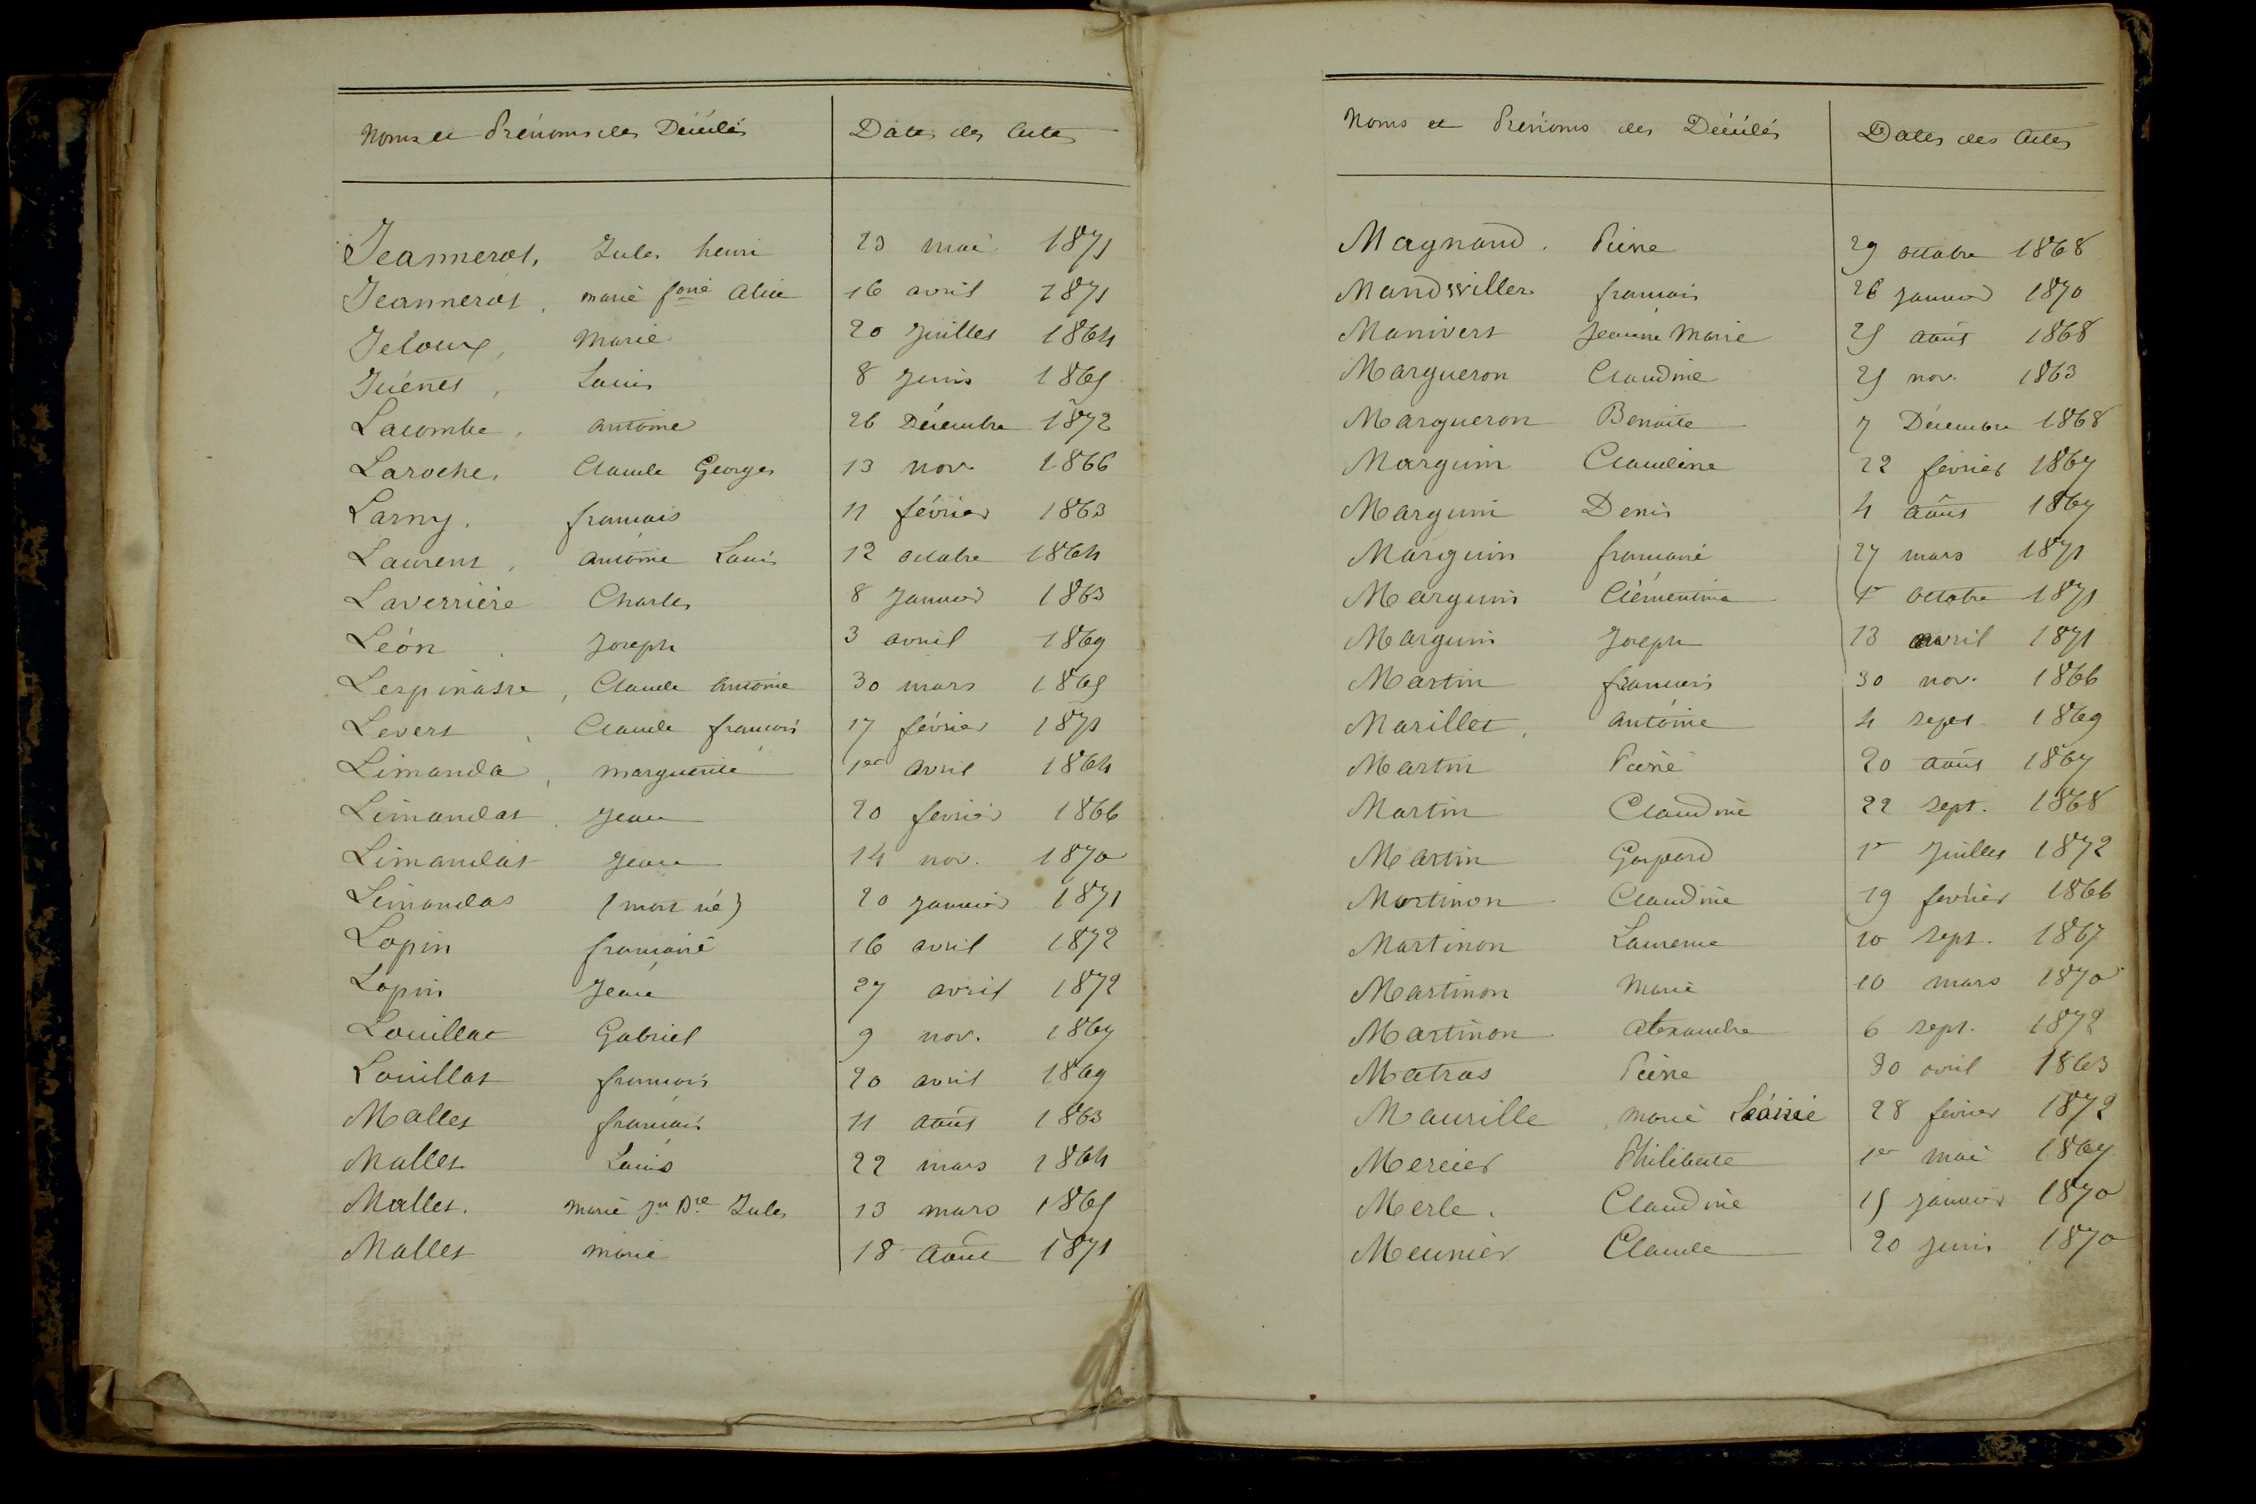 Noms et Prénoms des Décédés Dates des Actes
Jeannerot, Jules henri 23 mai 1871
Jeannerot, marie fçoise Alice 16 avril 1871
Jeloux, Marie 20 Juillet 1864
Juénet, Louis 8 Juin 1865
Lacombe, antoine 26 Décembre 1872
Laroche, Claude Georges 13 nov. 1866
Larny, francois 11 février 1863
Laurent, antoine Louis 12 octobre 1864
Laverrière Charles 8 Janvier 1863
Léon, Joseph 3 avril 1869
Lespinasse, Claude Antoine 30 mars 1865
Levert, Claude francois 17 février 1871
Limanda, marguerite 1er avril 1864
Limandat, Jean 20 fevrier 1866
Limandat Jean 14 nov. 1870
Limandas (mort né) 20 Janvier 1871
Lopin francoise 16 avril 1872
Lopin Jean 27 avril 1872
Louillat Gabriel 9 nov. 1867
Louillat francois 20 avril 1869
Mallet francois 11 août 1863
Mallet Louis 22 mars 1864
Mallet. marie Jn Bte Jules 13 mars 1865
Mallet marie 18 août 1871
Noms et Prénoms des Décédés Dates des Actes
Magnand. Pierre 29 octobre 1868
Mandwiller francois 26 Janvier 1870
Manivert Jeanne Marie 25 août 1868
Margueron Claudine 25 nov. 1863
Margueron Benoite 7 Décembre 1868
Marguin Claudine 22 février 1867
Marguin Denis 4 août 1867
Marguin francoise 27 mars 1871
Marguin Clémentine 1er octobre 1871
Marguin Joseph 13 avril 1871
Martin francois 30 nov. 1866
Marillet, antoine 4 sept. 1869
Martin Pierre 20 août 1867
Martin Claudine 22 sept. 1868
Martin Gaspard 1er Juillet 1872
Martinon Claudine 19 février 1866
Martinon Laurence 10 sept. 1867
Martinon Marie 10 mars 1870
Martinon Alexandre 6 sept. 1872
Matras Pierre 30 avril 1863
Maurille, marie Léonie 28 février 1872
Mercier Philiberte 1er mai 1867
Merle. Claudine 15 Janvier 1870
Meunier Claude 20 Juin 1870